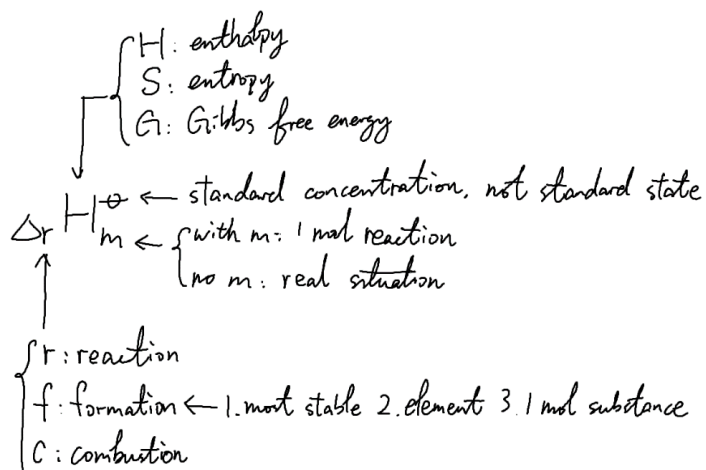 H: enthalpy
S: entropy
G: Gibbs free energy
ΔrHm⊖ ← standard concentration, not standard state
← with m: 1 mol reaction
no m: real situation
r: reaction
f: formation ← 1. most stable 2. element 3. 1 mol substance
C: combustion